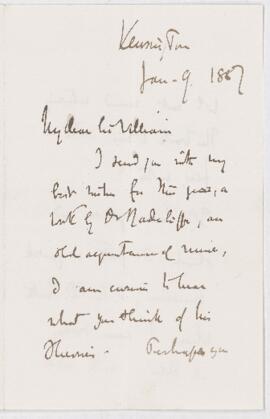 Kensington
Jan - 9. 1887
My dear Sir William
I send you with my
best wishes for this year, a
work by Dr Radcliffe, an
old acquaintance of mine,
I am curious to hear
what you think of his
theories - Perhaps you